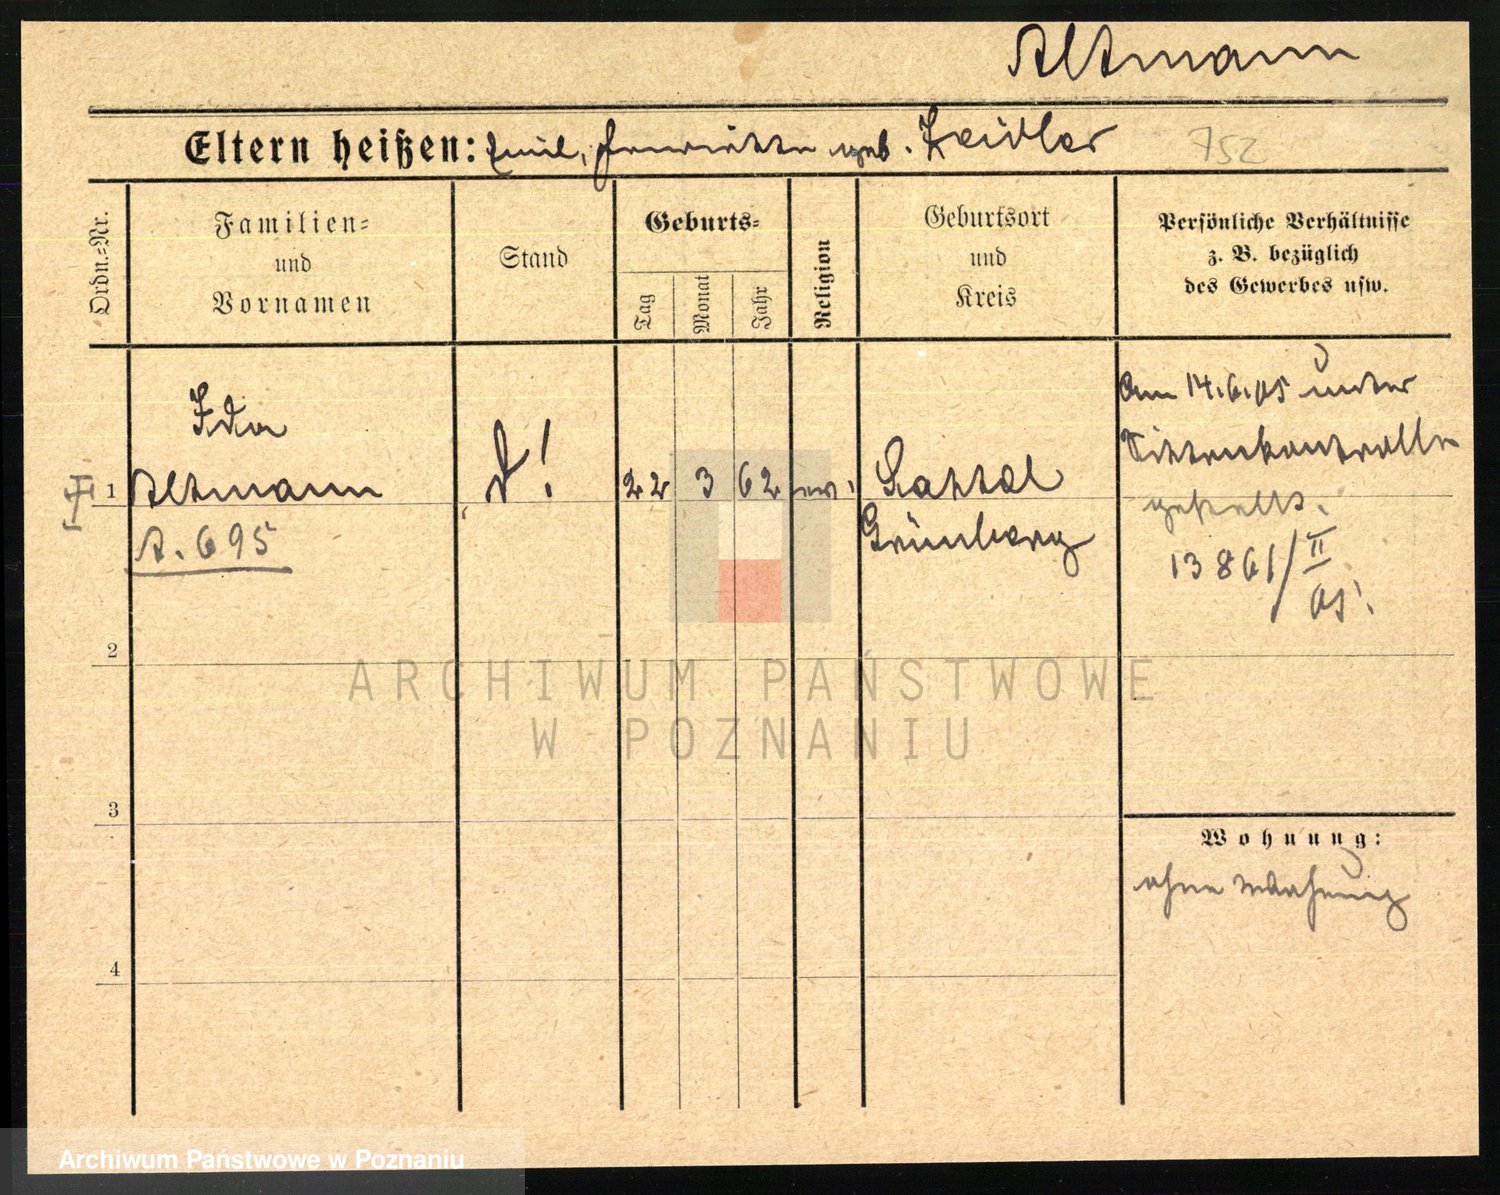 Altmann
Eltern heißen: Emil, Henriette geb. Zeidler
752
Ordn.-Nr.
Familien-
und
Vornamen
Stand
Geburts-
Tag
Monat
Jahr
Religion
Geburtsort
und
Kreis
Persönliche Verhältnisse
z. B. bezüglich
des Gewerbes usw.
1
Ida
Altmann
A. 695
22
3
62
ev.
Grünberg
Am 14.6.05 unter
Sittenkontrolle
gestellt.
13861/II
05.
2
3
4
Wohnung:
ohne Wohnung
ARCHIWUM PAŃSTWOWE
W POZNANIU
Archiwum Państwowe w Poznaniu